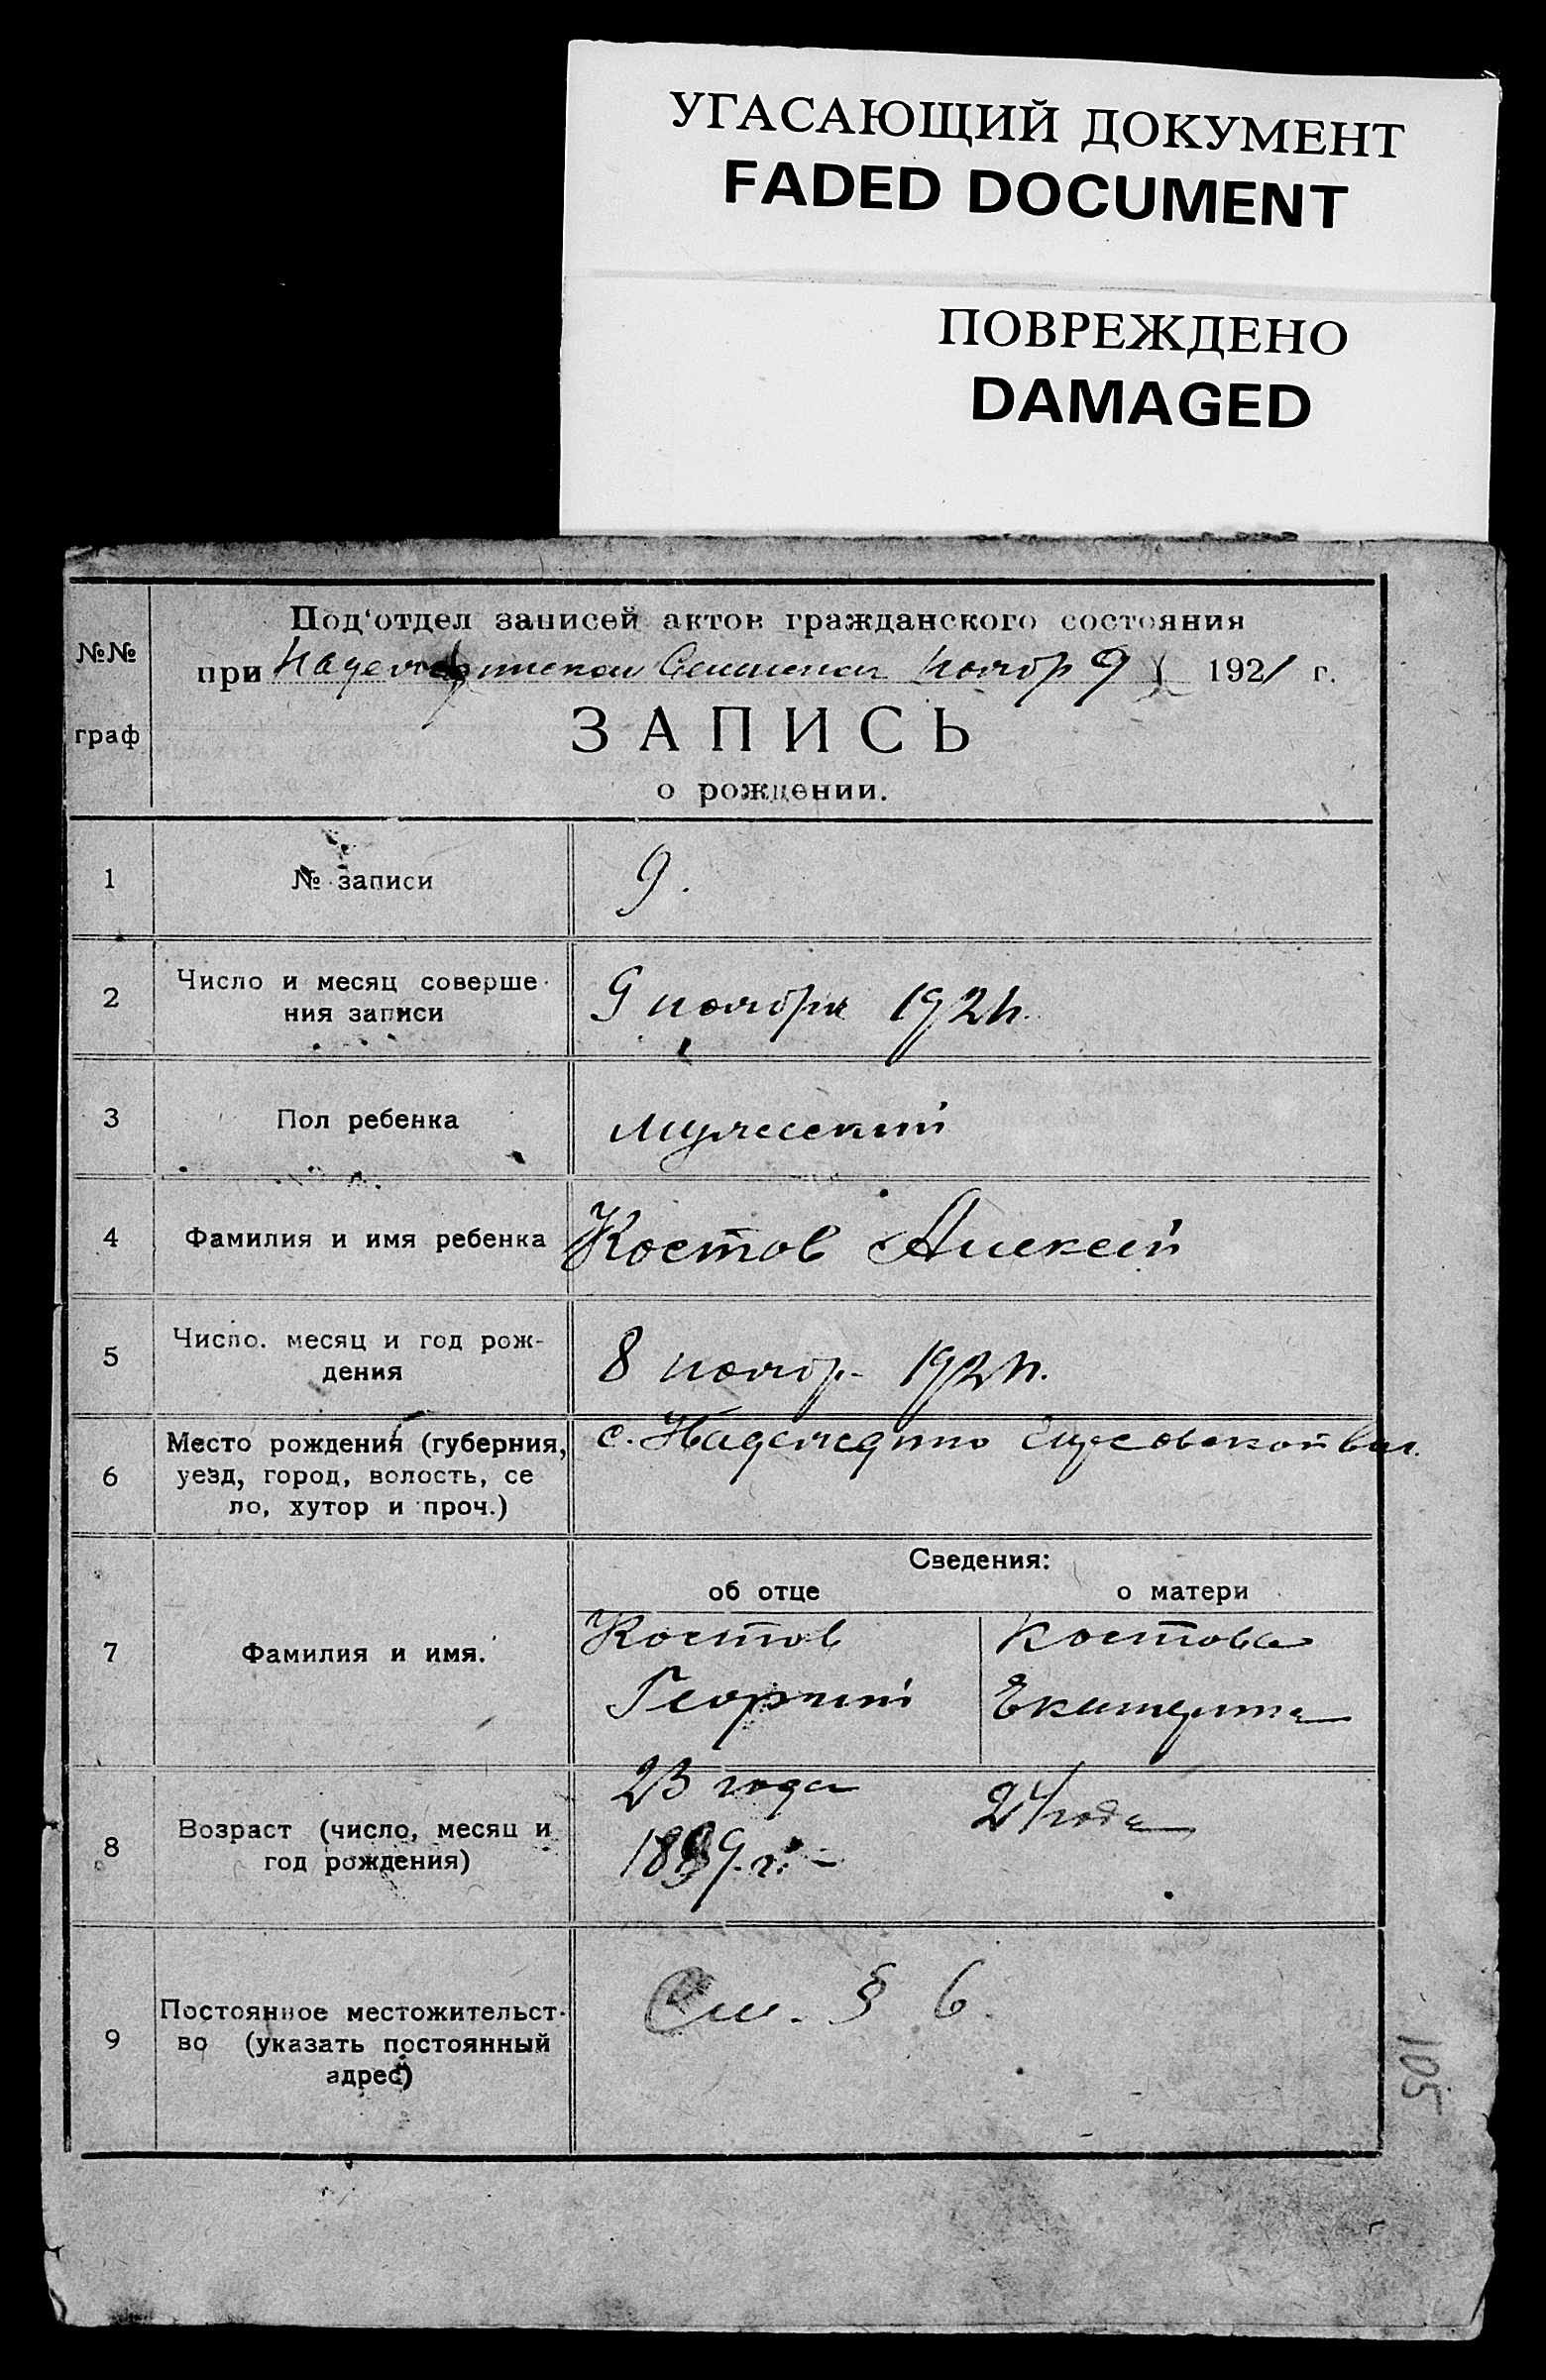 УГАСАЮЩИЙ ДОКУМЕНТ
FADED DOCUMENT
ПОВРЕЖДЕНО
DAMAGED
№№
граф
Под'отдел записей актов гражданского состояния
при ноябр 9 1921 г.
ЗАПИСЬ
о рождении.
1 № записи 9.
2 Число и месяц соверше-
ния записи
9 ноября 1921г.
3 Пол ребенка мужеский
4 Фамилия и имя ребенка Костов Алексей
5 Число. месяц и год рож-
дения
8 ноябр. 1921г.
6 Место рождения (губерния,
уезд, город, волость, се
ло, хутор и проч.)
с. Надеждино вол.
Сведения:
об отце о матери
7 Фамилия и имя.
Костов Костова
Георгий Екатерина
8 Возраст (число, месяц и
год рождения)
23 года 24 года
9 Постоянное местожительст-
во (указать постоянный
адрес)
См. § 6.
105